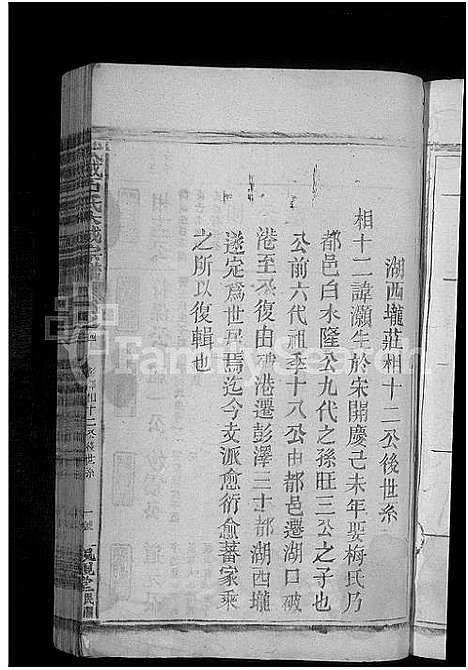 湖西壠莊相十二公後世系
相十二諱灝生於宋開慶己未年娶梅氏乃
都邑白木隆公九代之孫旺三公之子也
公前六代祖季十八公由都邑遷湖口破
港至公復由破港遷彭澤三十都湖西壠
遂定為世居焉迄今支派愈衍愈蕃家乘
之所以復輯也
相十二公後世系
FamilySearch